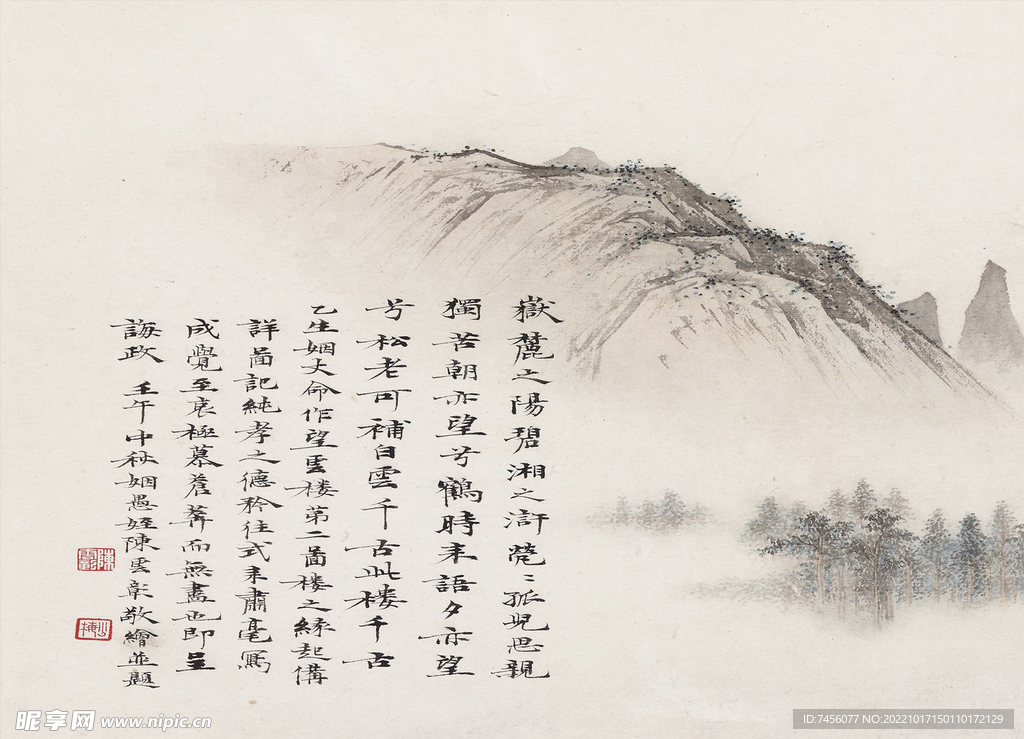 嶽麓之陽碧湘之滸煢〻孤児思親
獨苦朝亦望兮鶴時来語夕亦望
兮松老可補白雲千古此楼千古
乙生姻丈命作望雲楼第二啚楼之緣起備
詳啚記純孝之德矜往式来肅毫寫
成覺至哀極慕蒼莽而無盡也即呈
誨政 壬午中秋姻愚姪陳雲彰敬繪並題
昵享网 www.nipic.cn
ID:7456077 NO:20221017150110172129